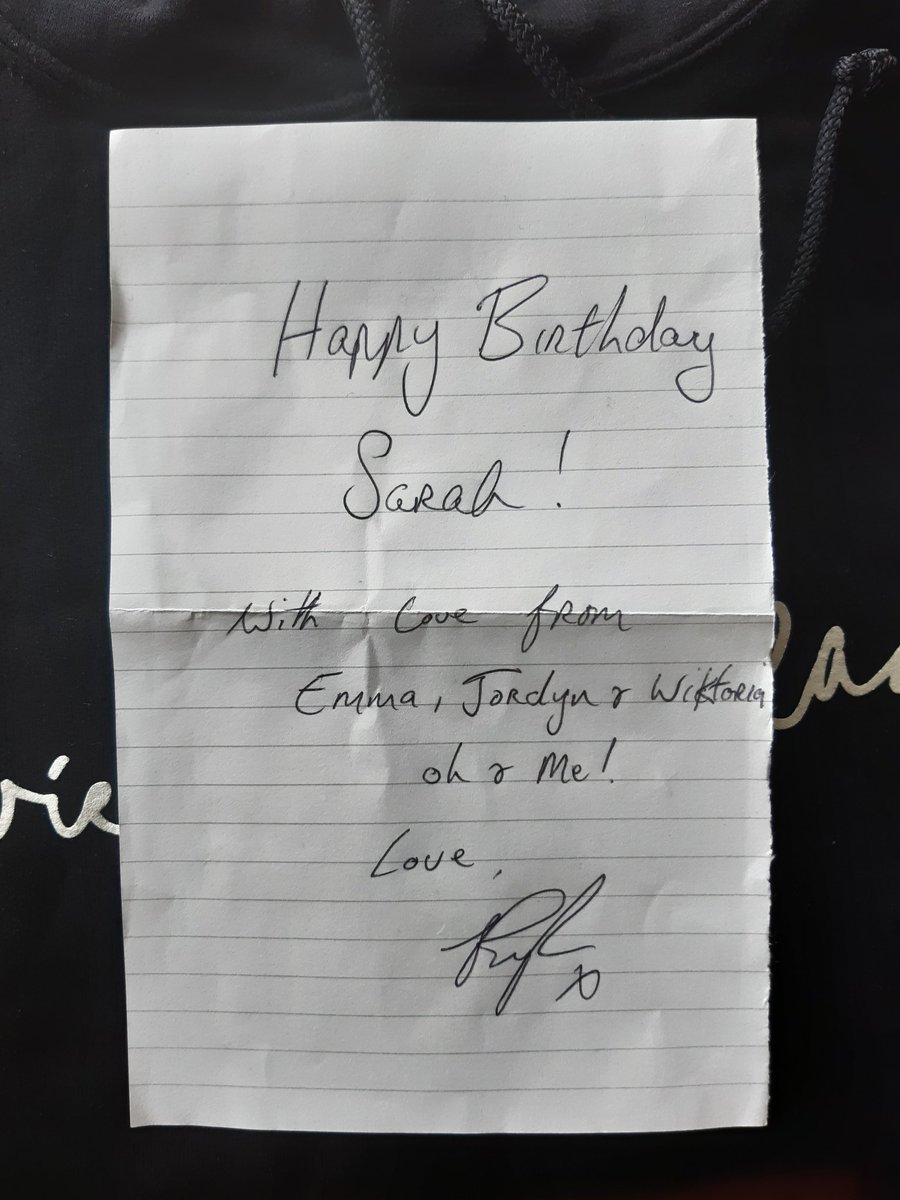 Happy Birthday
Sarah!
With Love from
Emma, Jordyn & Wiktoria
oh & Me!
Love,
x